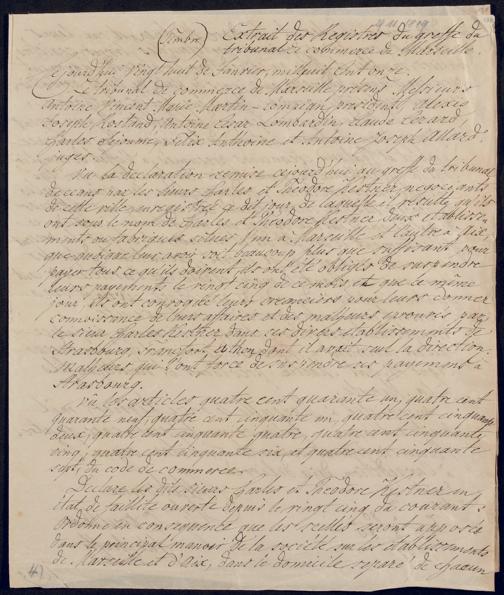 (Timbre) Extrait des Registres du greffe du
tribunal de commerce de Marseille
Cejourd'hui vingt huit de Janvier, mil huit cent onze,
Le tribunal de commerce de Marseille présens Messieurs
Antoine Vincent Marie Martin-comzian président, Alexis
Joseph Rostand, Antoine César Lombardon, Claude Cérard,
Charles Sejourné, Félix Anthoine et Antoine Joseph Allard
juges.
Vu la déclaration remise cejourd'hui au greffe du tribunal
de céans par les sieurs Charles et Théodore Kestner négocians
de cette ville, enregistrée ce dit jour, de laquelle il résulte qu'ils
ont sous le nom de Charles et Théodore Kestner deux établisse-
ments ou fabriques situés l'un à Marseille et l'autre à Aix,
que quoique leur avoir soit beaucoup plus que suffisant pour
payer tous ce qu'ils doivent ils ont été obligés de suspendre
leurs payements le vingt cinq de ce mois et que le même
jour ils ont convoqué leurs créanciers pour leurs donner
connoissance de leurs affaires et des malheurs éprouvés par
le sieur Charles Kestner dans ses divers établissements de
Strasbourg, Francfort, et Thon dont il avait seul la direction,
malheurs qui l'ont forcé de suspendre ses payements à
Strasbourg.
Vu les articles quatre cent quarante un, quatre cent
quarante neuf, quatre cent cinquante un, quatre cent cinquante
deux, quatre cent cinquante quatre, quatre cent cinquante
cinq, quatre cent cinquante six et quatre cent cinquante
sept du code de commerce.
Déclare les dits sieurs Charles et Théodore Kestner en
état de faillite ouverte depuis le vingt cinq du courant;
Ordonne en conséquence que les scellés seront apposés
dans le principal manoir de la société sur les établissements
de Marseille et d'Aix, dans le domicile séparé de chacun